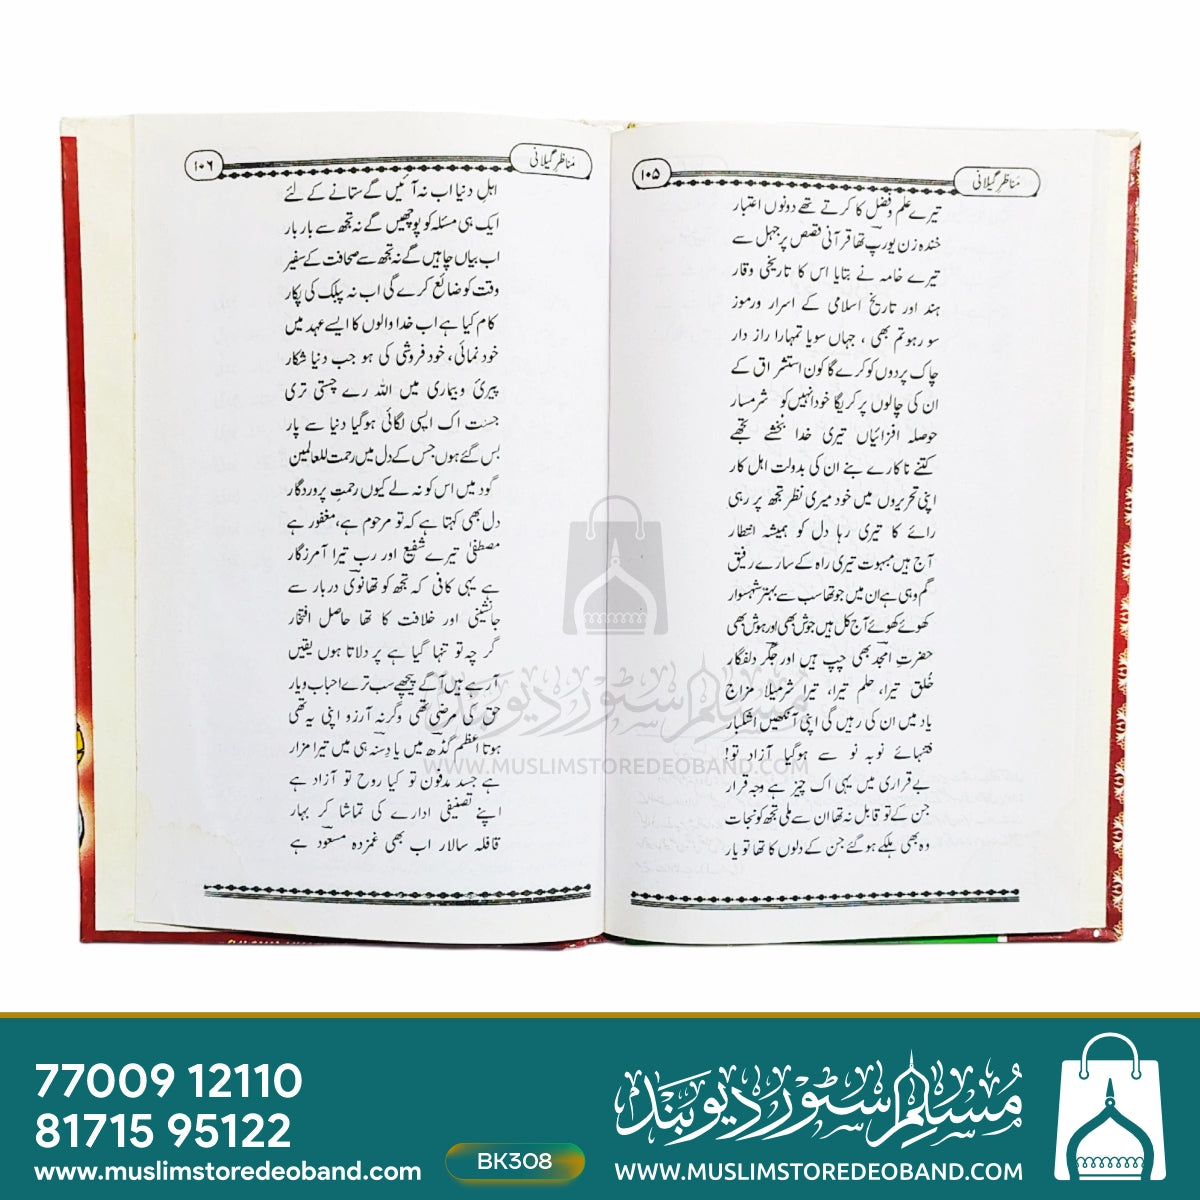 مناظر گیلانی
۱۰۵
تیرے علم و فضل کا کرتے تھے دونوں اعتبار
خندہ زن یورپ تھا قرآنی قصص پر جہل سے
تیرے خامہ نے بتایا اس کا تاریخی وقار
ہند اور تاریخ اسلامی کے اسرار ورموز
سو رہو تم بھی ، جہاں سویا تمہارا راز دار
چاک پردوں کو کرے گا کون استشراق کے
ان کی چالوں پر کریگا خود انہیں کو شرمسار
حوصلہ افزائیاں تیری خدا بخشے تجھے
کتنے ناکارے بنے ان کی بدولت اہل کار
اپنی تحریروں میں خود میری نظر تجھ پر رہی
رائے کا تیری رہا دل کو ہمیشہ انتظار
آج ہیں مبہوت تیری راہ کے سارے رفیق
گم وہی ہے ان میں جو تھا سب سے بہتر شہسوار
کھوئے کھوئے آج کل ہیں جوش بھی اور ہوش بھی
حضرت امجد بھی چپ ہیں اور جگر دلفگار
خُلق تیرا، حلم تیرا، تیرا شرمیلا مزاج
یاد میں ان کی رہیں گی اپنی آنکھیں اشکبار
فتنہائے نوبہ نو سے ہوگیا آزاد تو!
بے قراری میں یہی اک چیز ہے وجہ قرار
جن کے تو قابل نہ تھا ان سے ملی تجھ کو نجات
وہ بھی ہلکے ہوگئے جن کے دلوں کا تھا تو بار
مناظر گیلانی
۱۰۶
اہل دنیا اب نہ آئیں گے ستانے کے لئے
ایک ہی مسئلہ کو پوچھیں گے نہ تجھ سے بار بار
اب بیاں چاہیں گے نہ تجھ سے صحافت کے سفیر
وقت کو ضائع کرے گی اب نہ پبلک کی پکار
کام کیا ہے اب خدا والوں کا ایسے عہد میں
خود نمائی، خود فروشی کی ہو جب دنیا شکار
پیری و بیماری میں اللہ رے چستی تری
جست اک ایسی لگائی ہوگیا دنیا سے پار
بس گئے ہوں جس کے دل میں رحمت للعالمین
گود میں اس کو نہ لے کیوں رحمتِ پروردگار
دل بھی کہتا ہے کہ تو مرحوم ہے، مغفور ہے
مصطفیٰ تیرے شفیع اور رب تیرا آمرزگار
ہے یہی کافی کہ تجھ کو تھانوی دربار سے
جانشینی اور خلافت کا تھا حاصل افتخار
گر چہ تو تنہا گیا ہے پر دلاتا ہوں یقیں
آرہے ہیں آگے پیچھے سب ترے احباب و یار
حق کی مرضی تھی وگرنہ آرزو اپنی یہ تھی
ہوتا اعظم گڈھ میں یا دسنہ ہی میں تیرا مزار
ہے جسد مدفون تو کیا روح تو آزاد ہے
اپنے تصنیفی ادارے کی تماشا کر بہار
قافلہ سالار اب بھی غمزدہ مسعود ہے
مسلم سٹور دیوبند
WWW.MUSLIMSTOREDEOBAND.COM
77009 12110
81715 95122
www.muslimstoredeoband.com
BK308
مسلم سٹور دیوبند
WWW.MUSLIMSTOREDEOBAND.COM